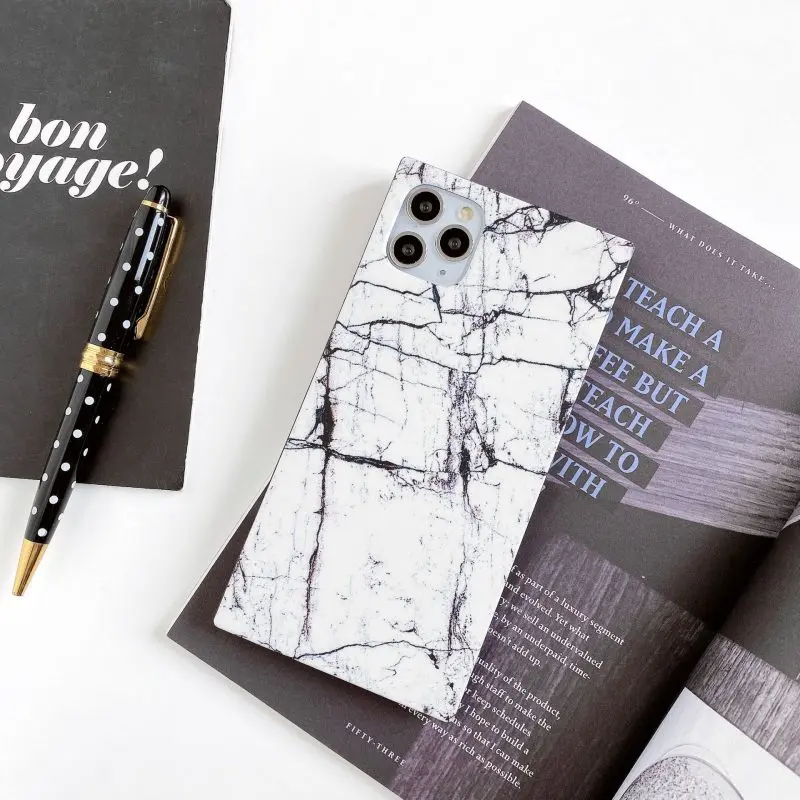 bon
oyage!
96° — WHAT DOES IT TAKE...
TEACH A
MAKE A
FEE BUT
TEACH
OW TO
WITH
as part of a luxury segment
and evolved. Yet what
we sell an undervalued
by an underpaid, time-
doesn't add up.
quality of the product,
staff to make the
keep schedules
I hope to build a
so that I can make
every way as rich as possible.
FIFTY-THREE